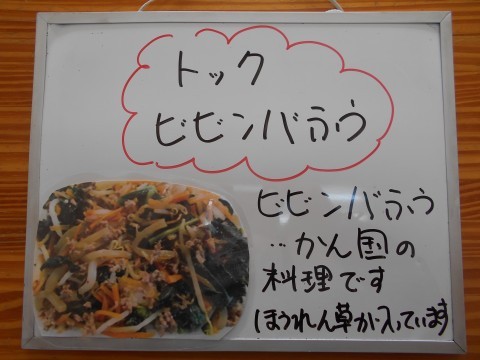 トック
ビビンバふう
ビビンバふう
…かん国の
料理です
ほうれん草が入っています